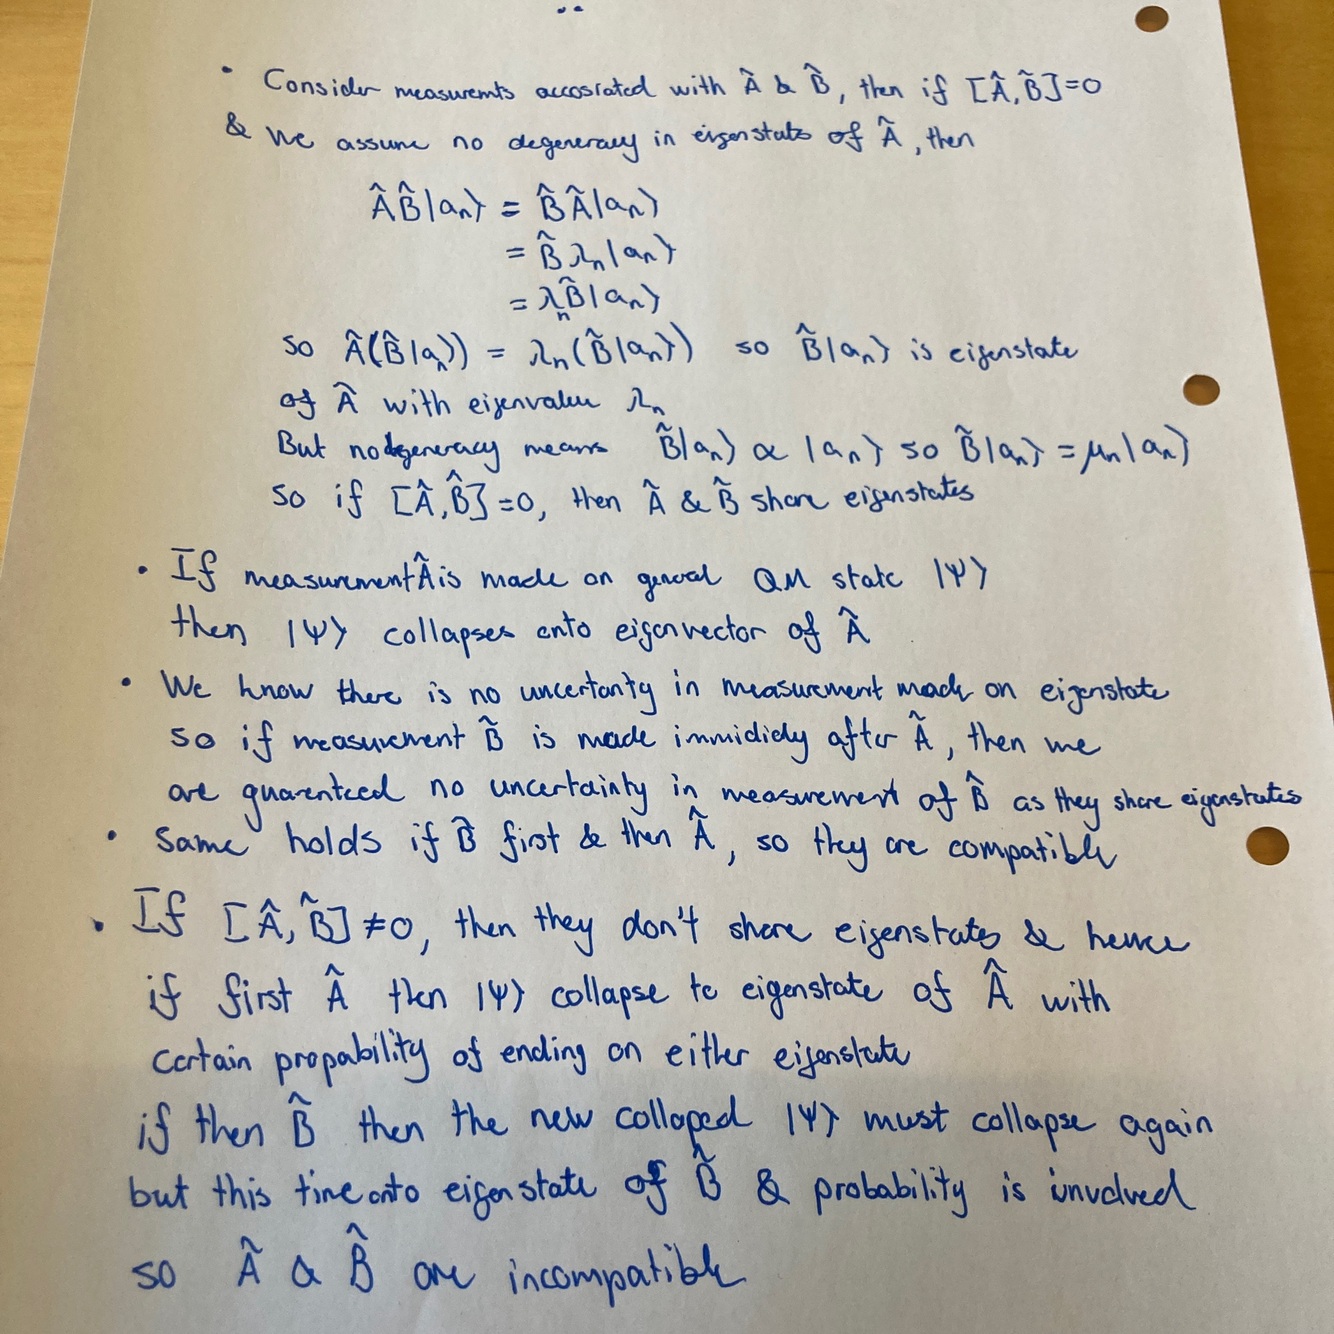 • Consider measuremts accosiated with Â & B̂, then if [Â, B̂]=0
& we assume no degeneracy in eigenstats of Â, then
ÂB̂|aₙ⟩ = B̂Â|aₙ⟩
= B̂ λₙ|aₙ⟩
= λₙB̂|aₙ⟩
so Â(B̂|aₙ⟩) = λₙ(B̂|aₙ⟩) so B̂|aₙ⟩ is eigenstate
of Â with eigenvalue λₙ
But no degeneracy means B̂|aₙ⟩ ∝ |aₙ⟩ so B̂|aₙ⟩ = μₙ|aₙ⟩
so if [Â, B̂]=0, then Â & B̂ share eigenstates
• If measurement Â is made on general QM state |Ψ⟩
then |Ψ⟩ collapses onto eigenvector of Â
• We know there is no uncertanty in measurement made on eigenstate
so if measurement B̂ is made immididly after Â, then we
are guarenteed no uncertainty in measurement of B̂ as they share eigenstates
• Same holds if B̂ first & then Â, so they are compatible
• If [Â, B̂] ≠0, then they don't share eigenstates & hence
if first Â then |Ψ⟩ collapse to eigenstate of Â with
certain propability of ending on either eigenstate
if then B̂ then the new collaped |Ψ⟩ must collapse again
but this time onto eigenstate of B̂ & probability is invovled
so Â & B̂ are incompatible